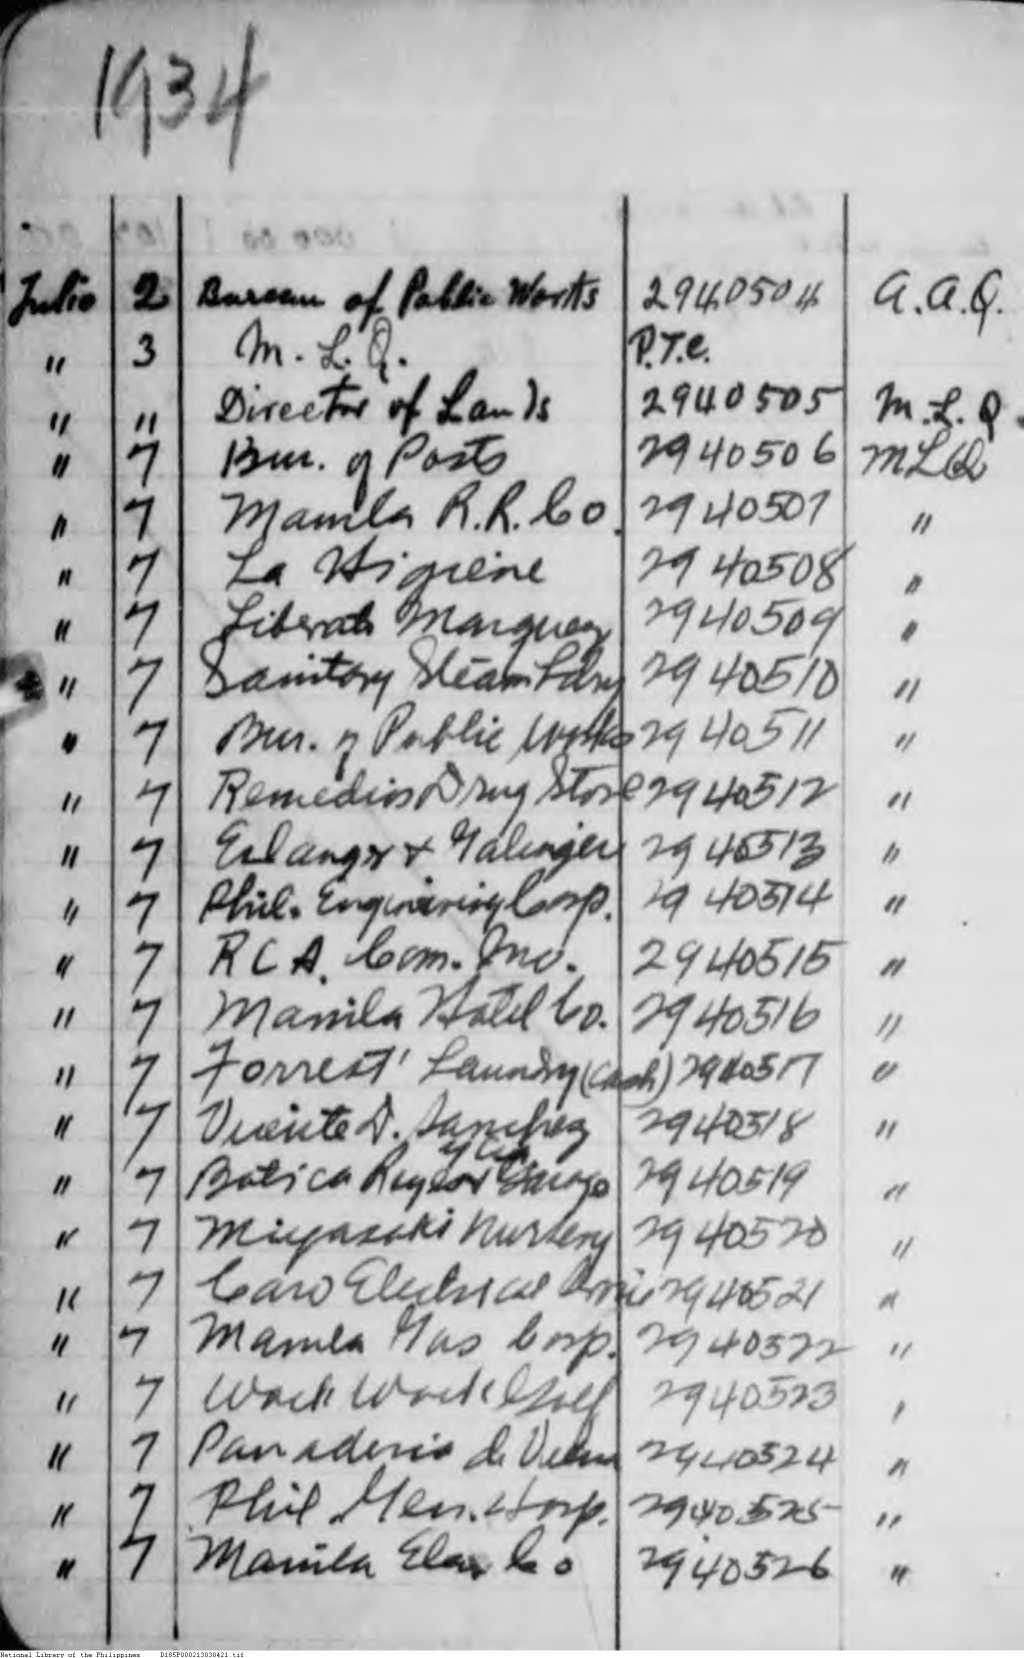 1934
Julio 2 Bureau of Public Works 2940504 A.A.Q.
" 3 M. L. Q. P.T.C.
" " Director of Lands 2940505 M.L.Q.
" 7 Bur. of Posts 2940506 MLQ
" 7 Manila R.R. Co. 2940507 "
" 7 La Higiene 2940508 "
" 7 Marquez 2940509 "
" 7 Sanitary Steam Ldry 2940510 "
" 7 Bur. of Public Works 2940511 "
" 7 Remedios Drug Store 2940512 "
" 7 Erlanger & Galinger 2940513 "
" 7 Phil. Engineering Corp. 2940514 "
" 7 R C A. Com. Inc. 2940515 "
" 7 Manila Hotel Co. 2940516 "
" 7 Forrest' Laundry (Cash) 2940517 "
" 7 Vicente D. Sanchez 2940518 "
y Cia
" 7 Botica 2940519 "
" 7 Miyasaki Nursery 2940520 "
" 7 Caro Electrical 2940521 "
" 7 Manila Gas Corp. 2940522 "
" 7 Wack Wack Golf 2940523 "
" 7 Panaderia de 2940524 "
" 7 Phil Gen. Hosp. 2940525 "
" 7 Manila Elec. Co 2940526 "
National Library of the Philippines D185P000213030421.tif